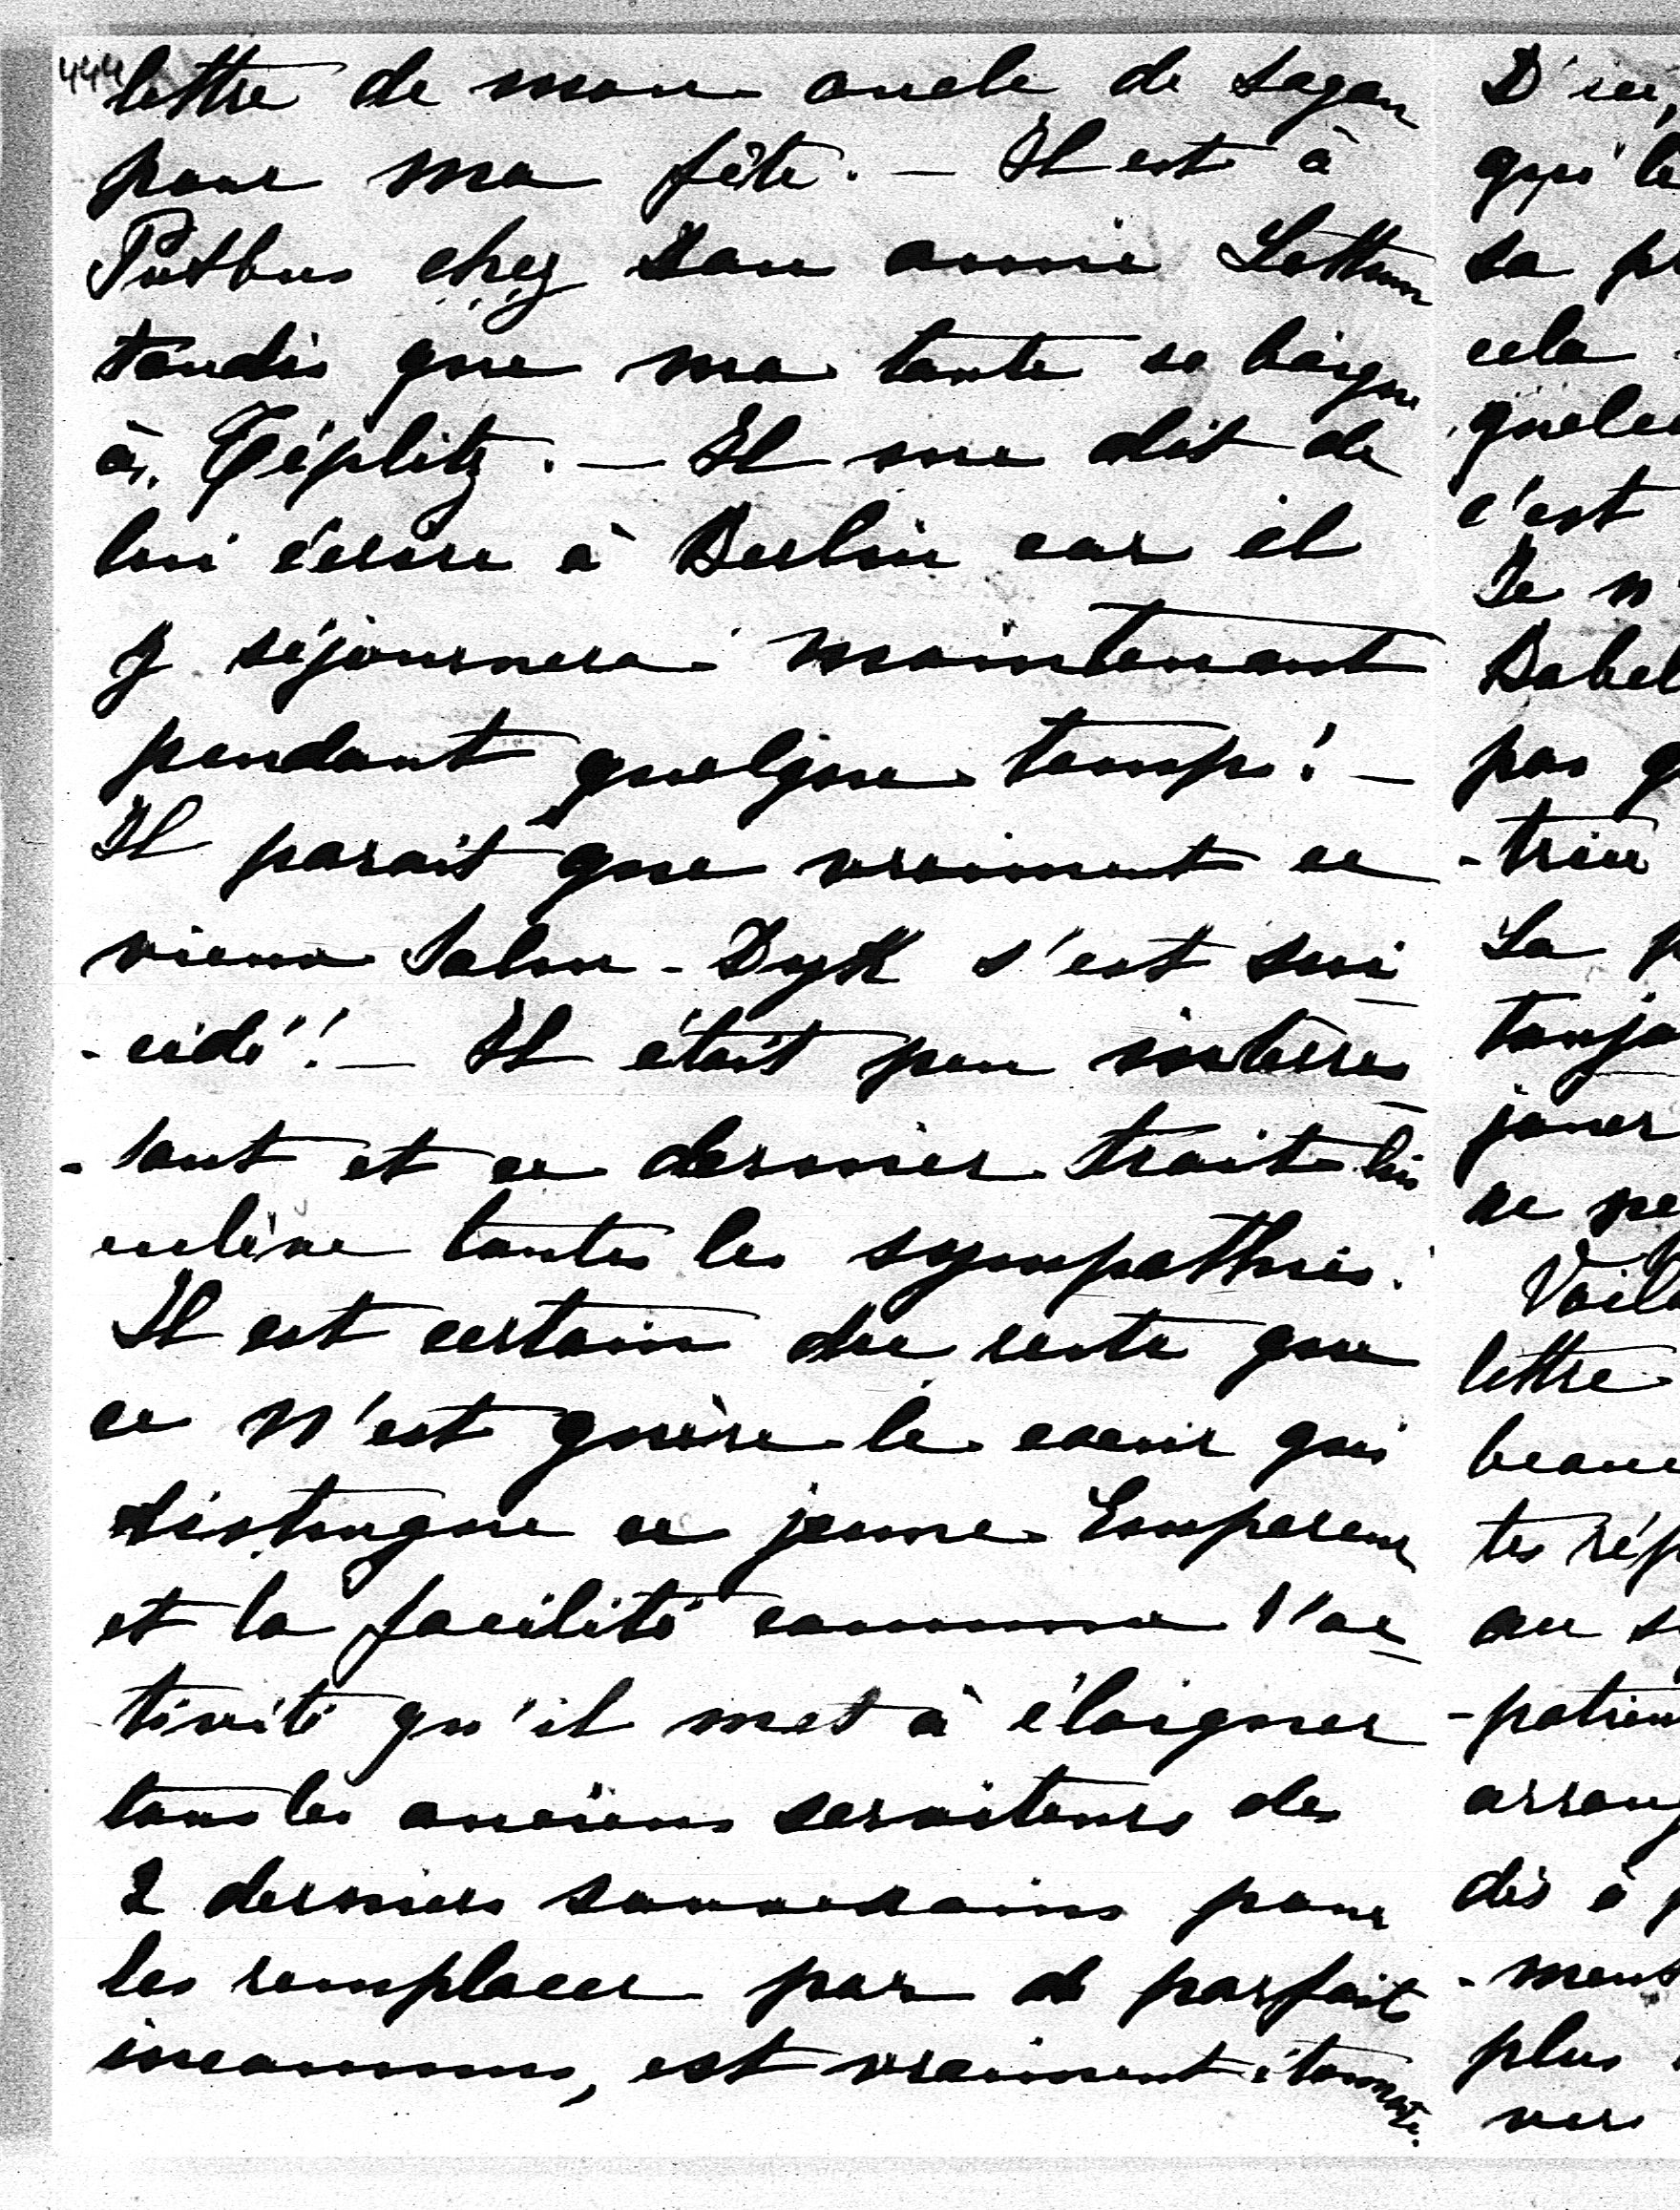 444
lettre de mon oncle de Sagan
pour ma fête. — Il est à
Putbus chez son amie Lottum
tandis que ma tante se baigne
à Téplitz. — Il me dit de
lui écrire à Berlin car il
y séjournera maintenant
pendant quelque temps! —
Il parait que vraiment ce
vieux Salm-Dyk s'est sui
-cidé! — Il était peu intéres
-sant et ce dernier trait lui
enlève toutes les sympathies.
Il est certain du reste que
ce n'est guère le coeur qui
distingue ce jeune Empereur
et la facilité comme l'ac
-tivité qu'il met à éloigner
tous les anciens serviteurs des
2 derniers souverains pour
les remplacer par de parfait
inconnus, est vraiment étonnante.
D'ici,
qui le
sa pr
cela
quelc
c'est
Je n'
Babel
pas q
-trice
La p
toujo
jouer
ne pe
Voilà
lettre
beauc
tes rép
au s
-patien
arrang
dès à p
-ment
plus
ver